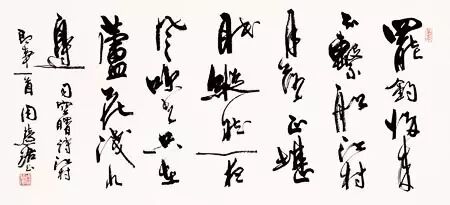 罷釣归来
不繫船江村
月落正堪
眠縱然一夜
风吹去只在
蘆花浅水
邊 司空曙诗江村
即事一首